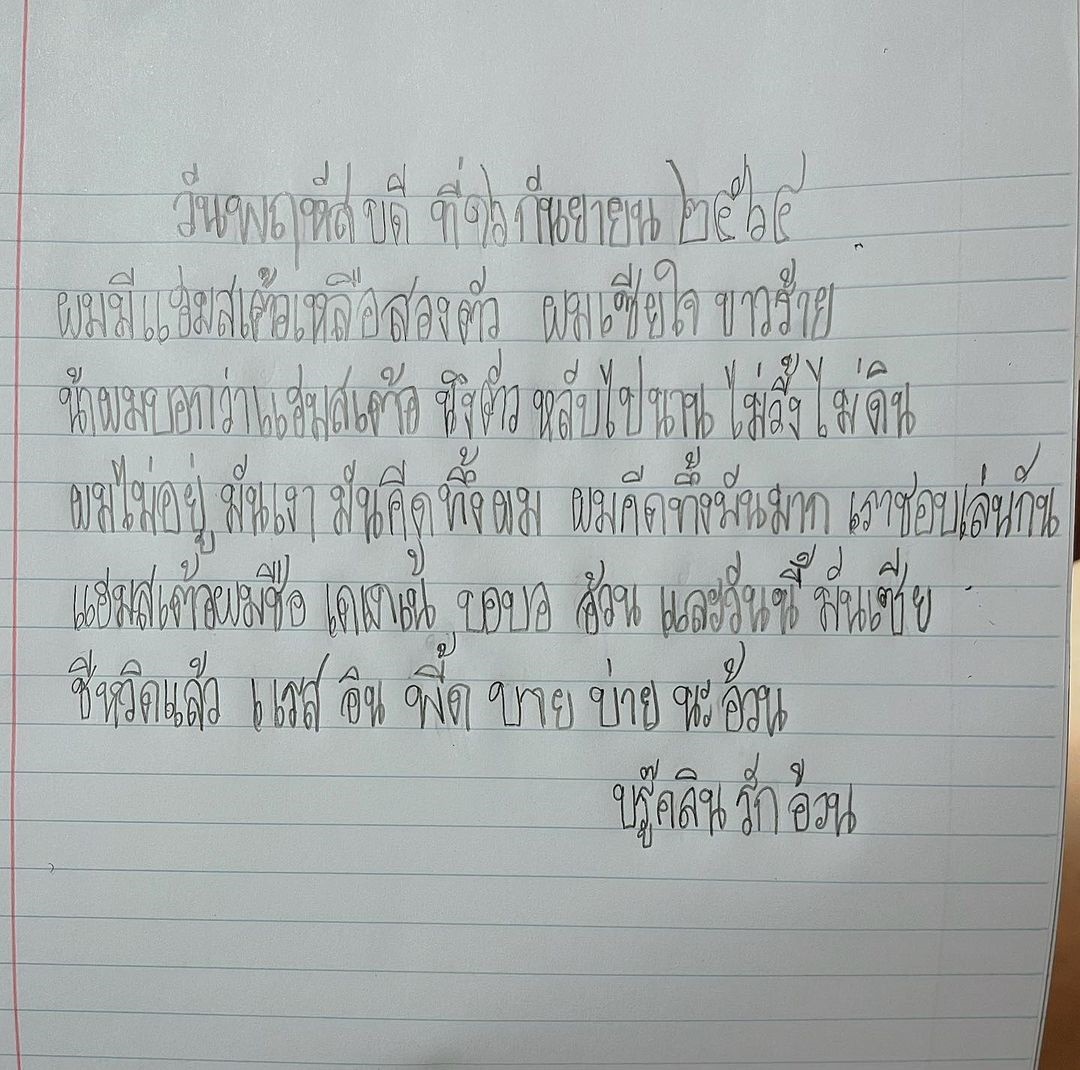 วันพฤหัส บดี ที่๑๖ กันยายน ๒๕๖๔
ผมมีแฮมสเต้อเหลือสองตัว ผมเซียใจ ขาวร้าย
น้าผมบอกว่าแฮมสเต้อ นึงตัว หลับไปนาน ไม่วิ้ง ไม่กิน
ผมไม่อยู่ มันเงา มันคึดทึ้งผม ผมคึดทึ้งมันมาก เราชอบเล่นกัน
แฮมสเต้อผมชือ เคเผเน่ ขอบอ อ้วน และวันนี้ มันเซีย
ชีหวิดแล้ว เเรส อิน พี้ด บาย บ่าย นะ อ้วน
บรู๊คลิน รัก อ้วน